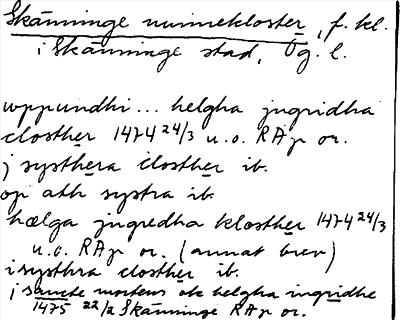 Skänninge nunnekloster, f. kl.
i Skänninge stad, Ög. l.
uppundhi... helgha jngridha
closther 1474 24/3 u.o. RAp or.
j systhera closther ib.
op ath systra ib.
hælga jngredha klosther 1474 24/3
u.o. RAp or. (annat brev)
i systhra closther ib.
j sancte mortens ok helgha ingridhe
1475 22/2 Skänninge RAp or.